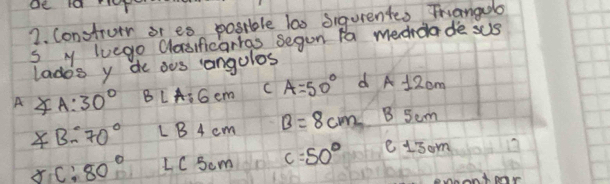 de la
2. Construir si es posible las Siguientes Triangulo
s y luego Clasificarlas segun la medida de sus
lados y de sus angulos
A ∡A:30° B LA:6 cm C A=50° d A 12cm
∡B=70° LB 4 cm B=8cm B 5cm
∡C:80° LC 5cm C=50° C 13cm